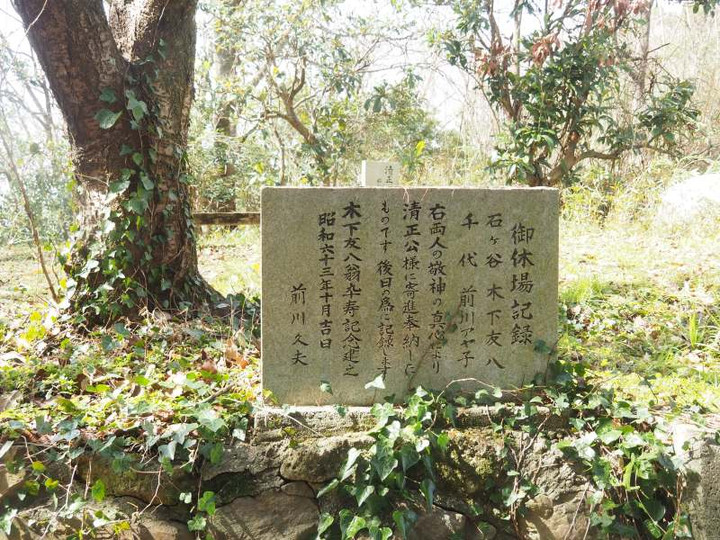 御休場記録
石ヶ谷 木下友八
千代 前川アヤ子
右両人の敬神の真心より
清正公様に寄進奉納した
ものです 後日の為に記録します
木下友八翁卆寿記念建之
昭和六十三年十月吉日
前川久夫
清正